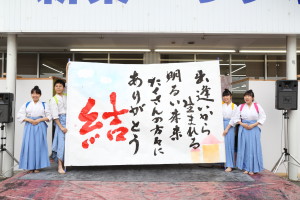 出逢いから
生まれる
明るい未来
たくさんの方々に
ありがとう
結